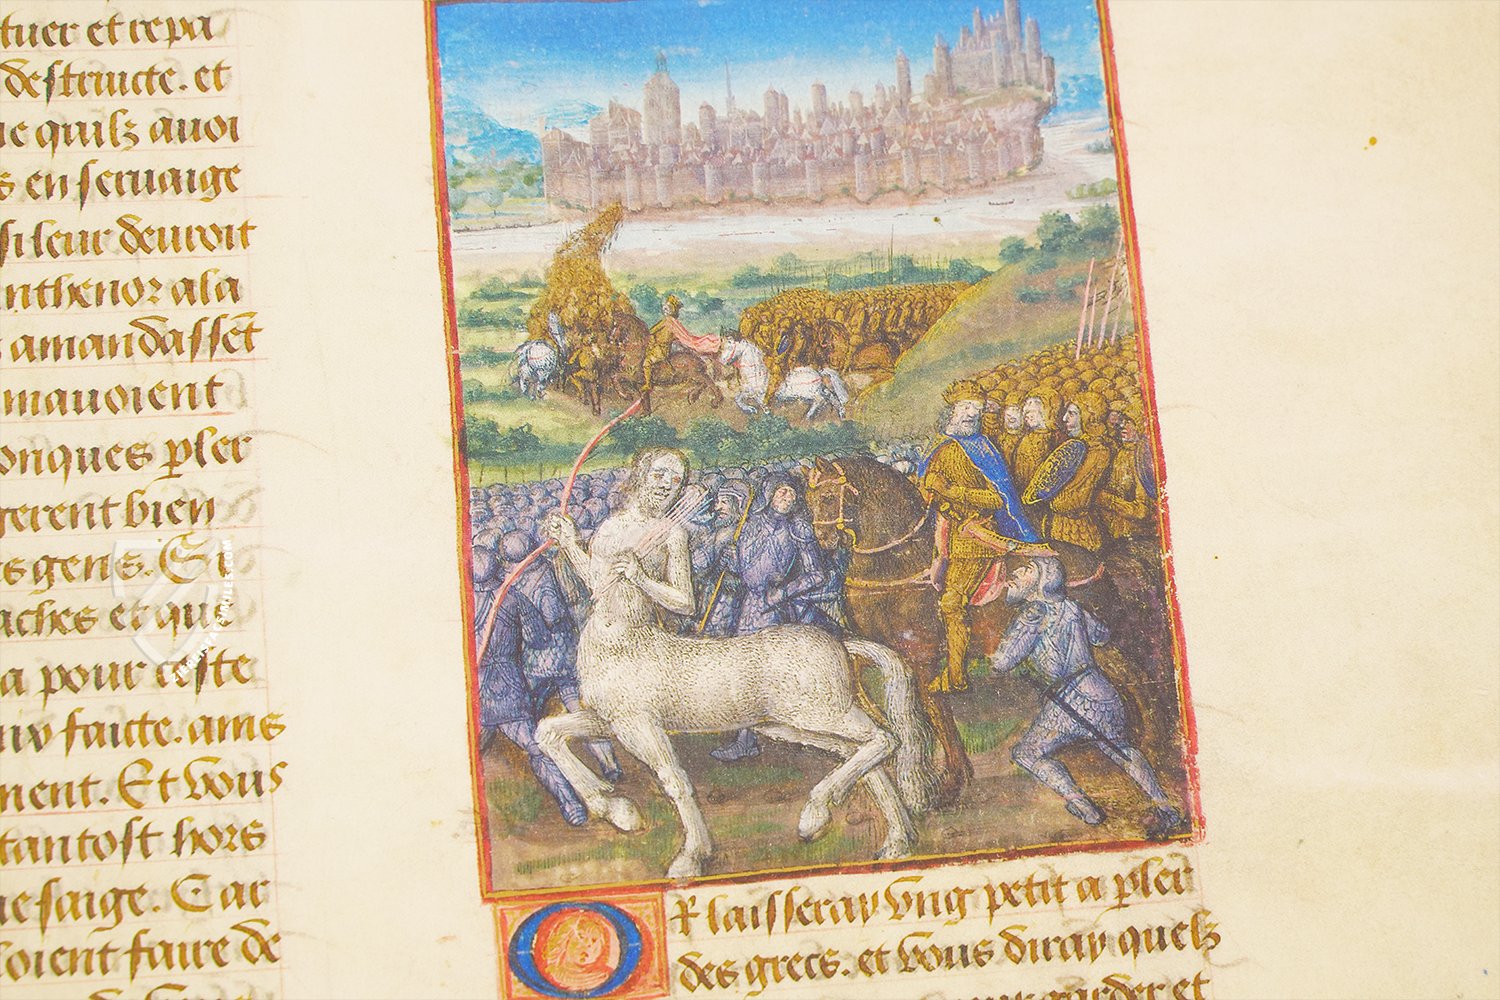 tuer et repa
destructe. et
ue quilz auoi
s en seruaige
si leur deuroit
anthenor a la
amandassent
mauoient
onques pler
gerent bien
s gens. Si
aches et que
a pour ceste
faicte. ams
ment. Et vous
tantost hors
ne saige. Car
loient faire de
OR laisseray vng petit a pler
des grecs. et vous diray quelz
garder et